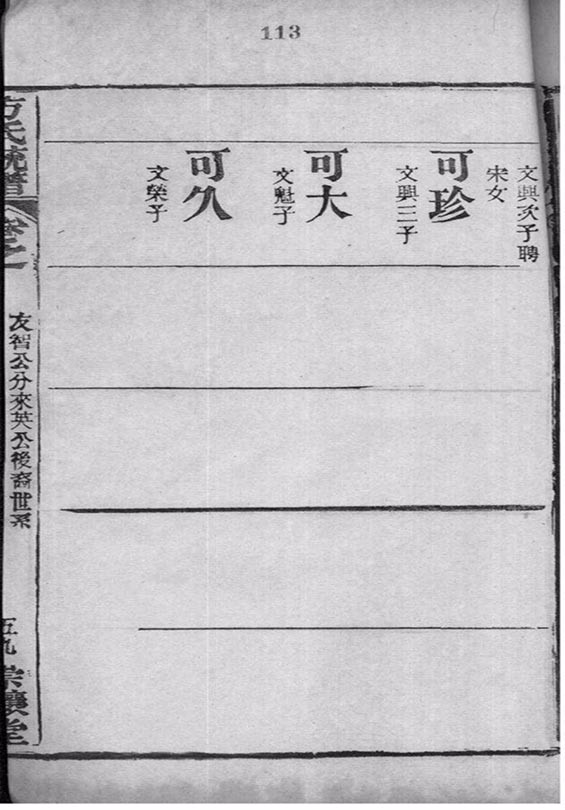 113
文興次子聘
宋女
可珍
文興三子
可大
文魁子
可久
文榮子
方氏統譜
卷之
友智公分來英公後裔世系
五九